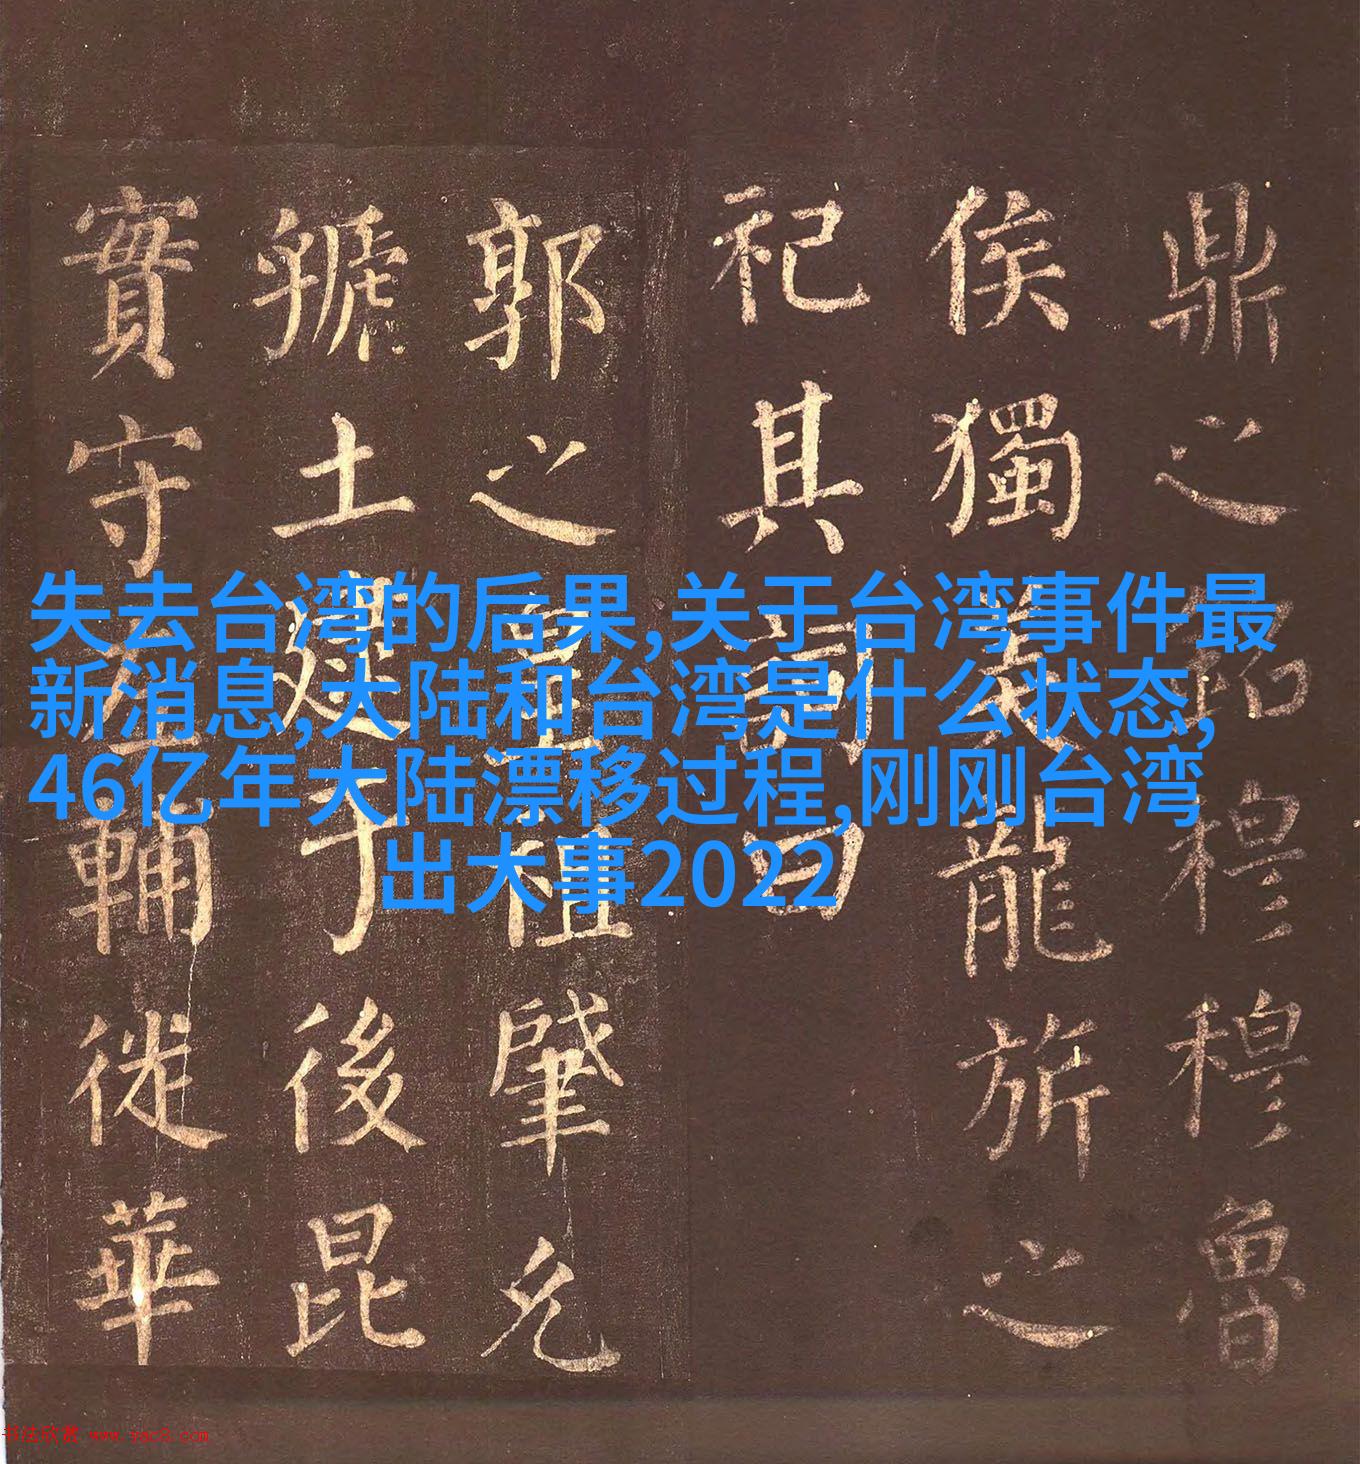 鼎之銘穆穆魯
侯獨美龍旂之
祀其詞曰
郭之皇祖肇允
虢土逮于後昆
實守左輔徙華
失去台湾的后果,关于台湾事件最
新消息,大陆和台湾是什么状态,
46亿年大陆漂移过程,刚刚台湾
出大事2022
书法欣赏 www.yac8.com